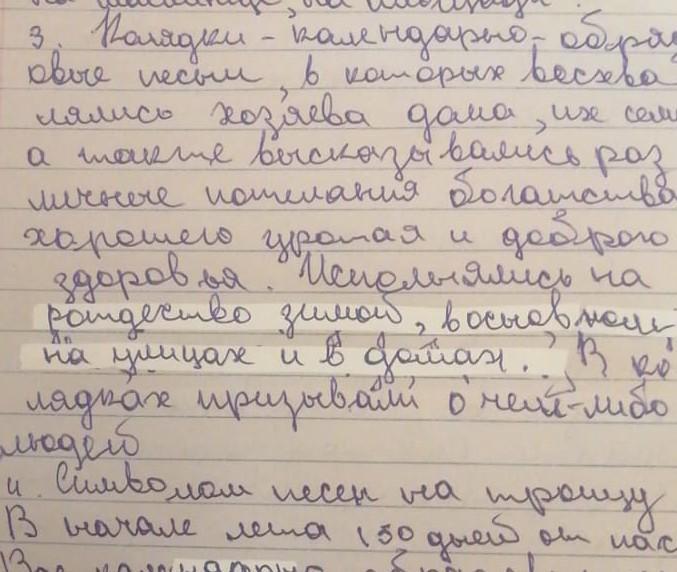 на площади.
3. Колядки - календарно-обряд
овые песни, в которых восхва
лялись хозяева дома, их сем
а также высказывались раз
личные пожелания богатства
хорошего урожая и доброго
здоровья. Исполнялись на
рождество зимой, восновном
на улицах и в домах. В ко
лядках призывали о чем-либо
людей
4. Символом песен на троицу
В начале лета (50 дней от пас